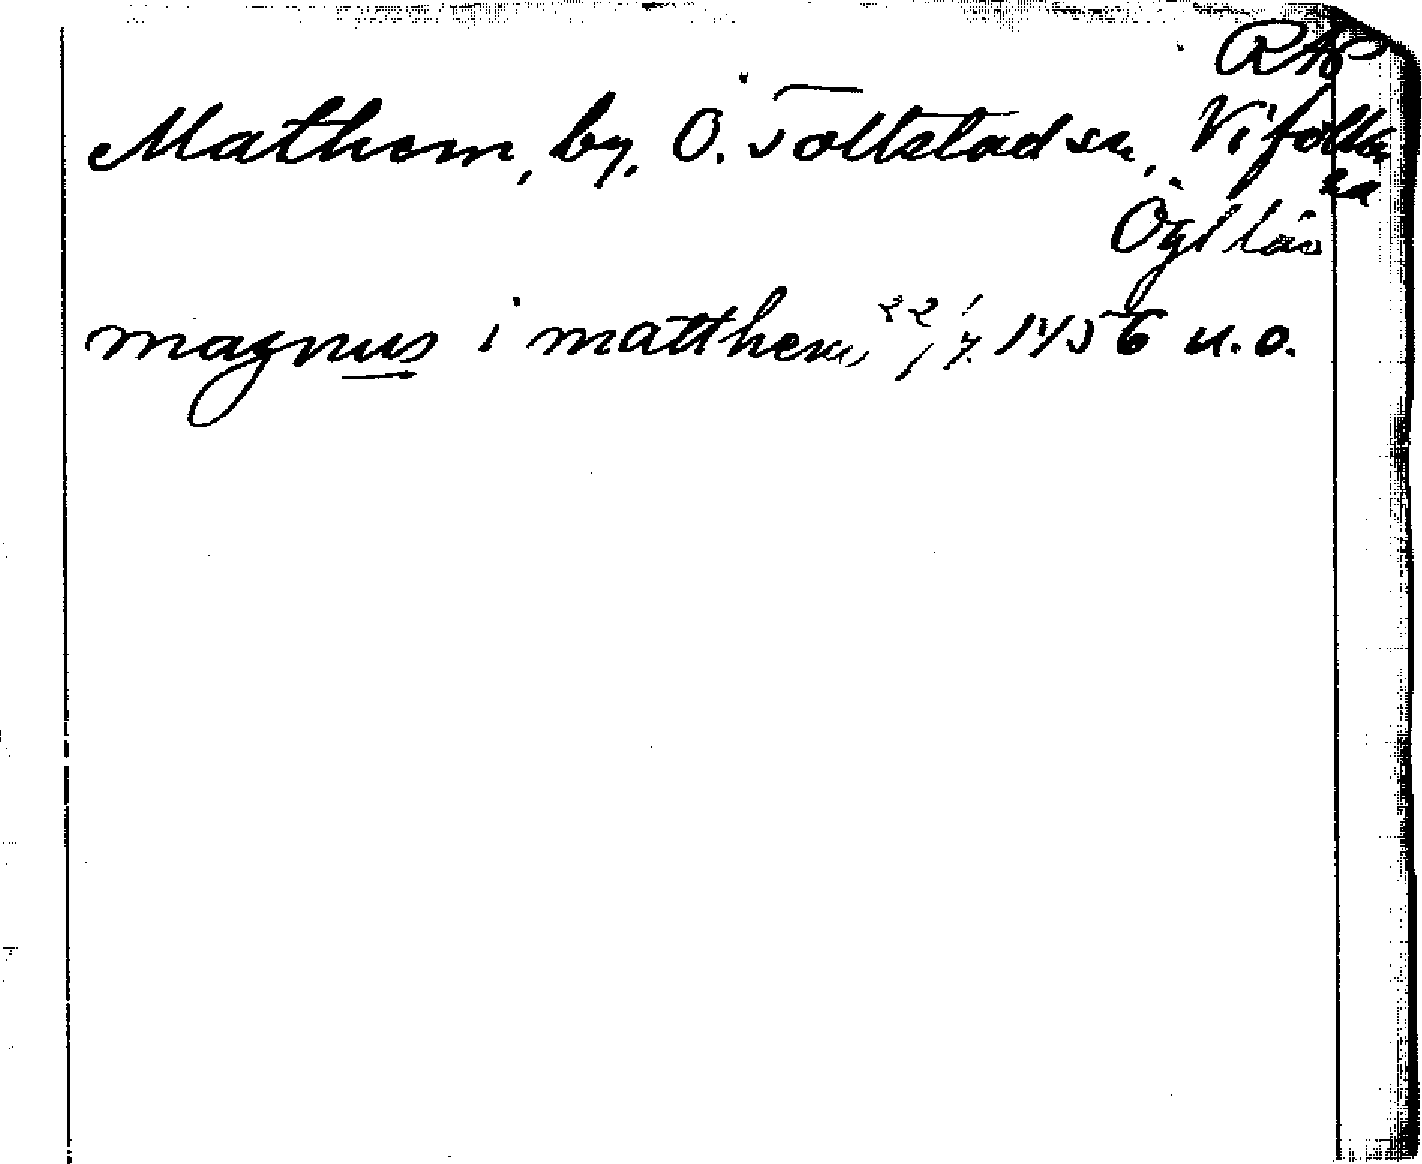 RAP
Mathem, by, Ö. Tollstad sn, Vifolka
hd
Ögl län
magnus i matthem 22/7 1456 u.o.